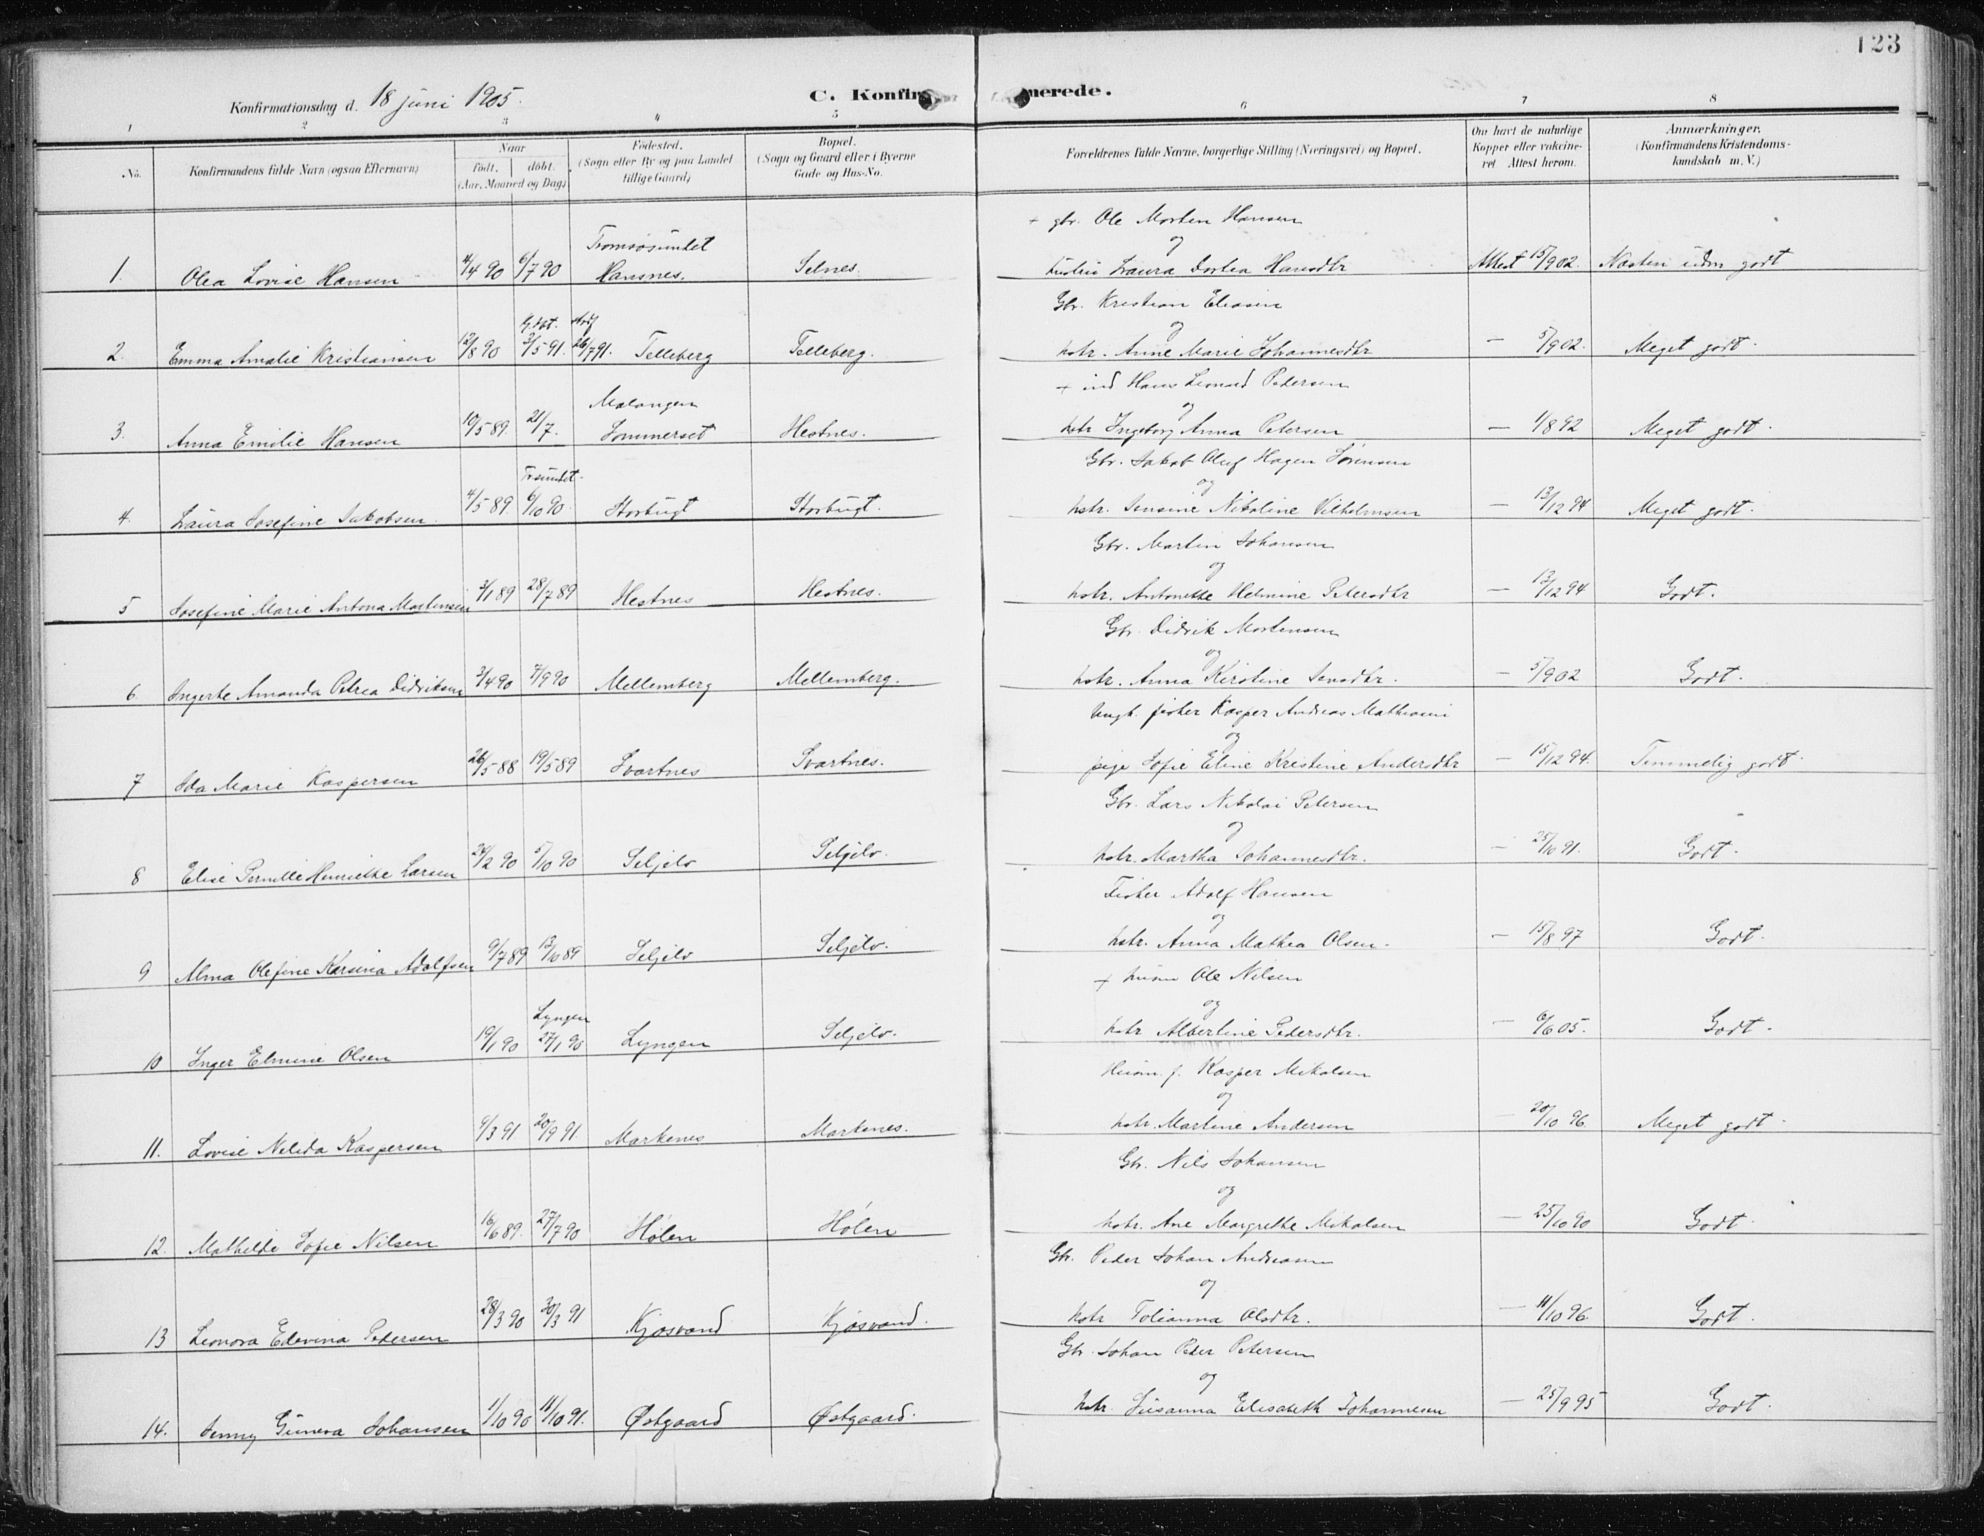 123
Konfirmationsdag d. 18 juni 1905.
C. Konfir merede.
1 2 3 4 5 6 7 8
No. Konfirmandens fulde Navn (ogsaa Efternavn) Naar Födt. döbt. (Aar, Maaned og Dag) Födested. (Sogn eller By og paa Landet tillige Gaard) Bopæl. (Sogn og Gaard eller i Byerne Gade og Hus-No. Forældrenes fulde Navne, borgerlige Stilling (Næringsvei) og Bopæl. Om havt de naturlige Kopper eller vakcineret Attest herom. Anmærkninger. (Konfirmandens Kristendomskundskab m. V.)
+ gbr. Ole Morten Hansen
og
1. Olea Lovise Hansen 4/4 90 6/7 90 Tromsøsundet Hansnes. Selnes. hustru Laura Dortea Hansdtr Attest 15/9 02. Næsten udm godt
Gbr. Kristian Eliasen
og
2. Emma Amalie Kristiansen 12/8 90 3/5 91. 26/7 91. Telleberg Telleberg. hstr. Anne Marie Johannesdtr — 5/9 02. Meget godt.
+ ind Hans Leonard Pedersen
og
3. Anna Emilie Hansen 10/5 89. 21/7. Malangen Sommerset Hestnes. hstr Ingeborg Anna Petersen — 1/8 92 Meget godt.
Gbr. Jakob Oluf Hagen Sørensen
og
4. Laura Josefine Jakobsen. 4/5 89. Trsundet. 6/10 90. Storbugt Storbugt. hstr. Jensine Nikoline Vilhelmsen — 13/12 94 Meget godt.
Gbr. Martin Johansen
og
5 Josefine Marie Antona Martinsen 3/1 89 28/7 89 Hestnes Hestnes. hstr. Antonette Helmine Petersdtr — 13/12 94 Godt.
Gbr. Didrik Mortensen
og
6. Ingerte Amanda Petrea Didriksen 3/4 90 7/9 90 Mellemberg Mellemberg. hstr. Anna Kirstine Jensdtr. — 5/9 02 Godt.
Ungk. fisker Kasper Andreas Mathisen
og
7 Ida Marie Kaspersen 26/5 88 19/5 89 Svartnes Svartnes. pige Sofie Eline Kristine Andersdtr — 15/12 94. Temmelig godt.
Gbr. Lars Nikolai Petersen
og
8 Elise Pernille Henrikke Larsen 24/2 90 5/10 90 Seljelv Seljelv. hstr. Martha Johannesdtr. — 25/10 91. Godt.
Fisker Adolf Hansen
og
9 Alma Olefine Karsina Adolfsen 9/7 89 13/10 89 Seljelv Seljelv. hstr. Anna Mathea Olsen. — 15/8 97 Godt.
+ husm Ole Nilsen
og
10 Inger Elmine Olsen 19/1 90 Lyngen 27/1 90 Lyngen Seljelv. hstr Albertine Pedersdtr. — 6/6 05. Godt.
Husm. f. Kasper Mikalsen
og
11. Lovise Nelida Kaspersen 6/3 91 20/9 91. Markenes Markenes. hstr. Martine Andersen — 20/10 96 Meget godt.
Gbr. Nils Johansen
og
12. Mathilde Sofie Nilsen 16/6 89. 27/7 90 Hølen Hølen hstr. Ane Margrethe Mikalsen — 25/10 90 Godt.
Gbr. Peder Johan Andreasen
og
13 Leonora Edevina Pedersen 28/3 90 30/3 91 Kjosvand Kjosvand. hstr Tolianna Olsdtr. — 11/10 96 Godt.
Gbr. Johan Peder Petersen
og
14. Jenny Gunera Johansen 1/10 90 11/10 91. Østgaard Østgaard. hstr. Susanna Elisabeth Johannesen — 25/9 95 Godt.